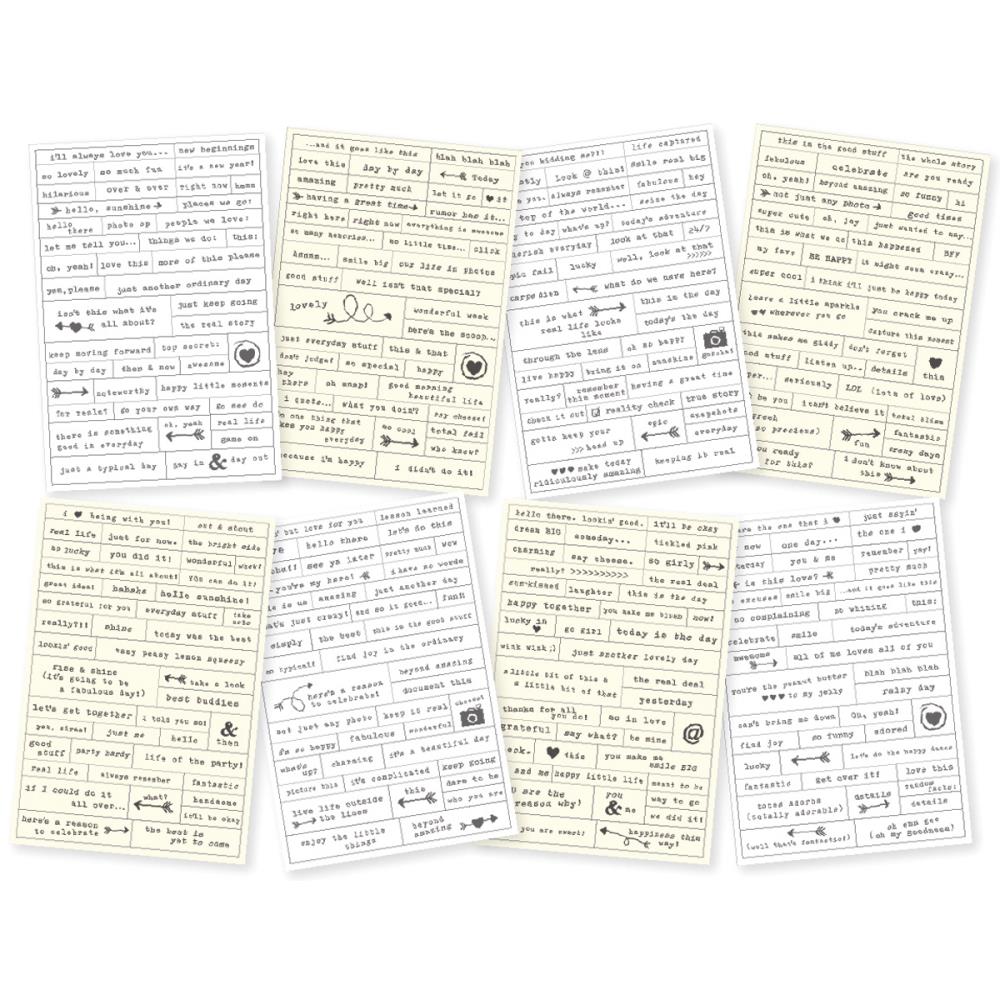 i'll always love you... new beginnings
so lovely so much fun it's a new year!
hilarious over & over right now hmmm
hello, sunshine places we go!
hello there photo op people we love!
let me tell you... things we do! this:
oh, yeah! love this more of this please
yes, please just another ordinary day
isn't this what it's all about? just keep going
the real story
keep moving forward top secret:
day by day then & now awesome
noteworthy happy little moments
for reals! go your own way go see do
there is something good in everyday oh, yeah real life
game on
just a typical day day in & day out
...and it goes like this blah blah blah
love this day by day Today
amazing pretty much let it go it
having a great time rumor has it...
right here right now everything is awesome
so many memories... so little time... click
hmmm... smile big our life in photos
good stuff well isn't that special?
lovely wonderful week
here's the scoop...
just everyday stuff this & that
don't judge! so special happy
there oh snap! good morning beautiful life
i quote... what you doin? say cheese!
one thing that makes you happy everyday so cool total fail
who knew?
because i'm happy i didn't do it!
you kidding me?!! life captured
Look @ this! Smile real big
always remember fabulous hey
top of the world... seize the day
to day what's up? today's adventure
cherish everyday look at that 24/7
epic fail lucky well, look at that >>>>>>
carpe diem what do we have here?
this is what real life looks like this is the day
today's the day
through the lens oh so happy
live happy bring it on sunshine gotcha!
really? remember this moment having a great time
check it out reality check true story
gotta keep your >>> head up epic snapshots
everyday
make today ridiculously amazing keeping it real
this is the good stuff the whole story
fabulous celebrate are you ready
oh, yeah! beyond amazing so funny hi
not just any photo good times
super cute oh, joy just wanted to say...
this is what we do this happened BFF
my fave BE HAPPY it might seem crazy...
super cool i think i'll just be happy today
leave a little sparkle wherever you go you crack me up
capture this moment
this makes me giddy don't forget
good stuff listen up.. details this
seriously LOL (lots of love)
be you i can't believe it total bliss
so precious) fun fantastic
crazy days
you ready for this? i don't know about this
i being with you! out & about
real life just for now. the bright side
so lucky you did it! wonderful whew!
this is what it's all about! you can do it!
great idea! hahaha hello sunshine!
so grateful for you everyday stuff take note
really?!! shine today was the best
lookin' good easy peasy lemon squeezy
rise & shine (it's going to be a fabulous day!) take a look
best buddies
let's get together i told you so! & then
yes, siree! just me hello
good stuff party hardy life of the party!
real life always remember fantastic
if I could do it all over... what? handsome
it'll be okay
here's a reason to celebrate the best is yet to come
but love for you lesson learned
hello there let's do this
see ya later pretty much wow
you're my hero! i have no words
amazing just another day
that's just crazy! and so it goes... fun!
simply the best this is the good stuff
so typical! find joy in the ordinary
here's a reason to celebrate! beyond amazing
document this
not just any photo keep it real cheese!
i'm so happy fabulous wonderful
what's up? charming it's a beautiful day
picture this it's complicated keep going
live life outside the lines this dare to be
who you are
enjoy the little things beyond amazing
hello there. lookin' good. it'll be okay
dream BIG someday... tickled pink
charming say cheese. so girly
really? >>>>>>>>>> the real deal
sun-kissed laughter this is the day
happy together you make me blush now!
lucky in go girl today is the day
wink wink ;) just another lovely day
a little bit of this & a little bit of that the real deal
yesterday
thanks for all you do! so in love @
grateful say what? be mine
this you make me smile BIG
and me happy little life meant to be
are the reason why! you & me way to go
we did it!
you are sweet! happiness this way!
are the one that i just sayin'
now one day... the one i
you & me remember yay!
is this love? pretty much
excuses smile big ..and it goes like this
no complaining no whining this:
celebrate smile today's adventure
awesome all of me loves all of you
you're the peanut butter to my jelly blah blah blah
rainy day
can't bring me down Oh, yeah!
find joy so funny adored
lucky let's do the happy dance
fantastic get over it! love this
totes adorbs (totally adorable) details random facts:
details
(well that's fantastic!) oh emm gee (oh my goodness)